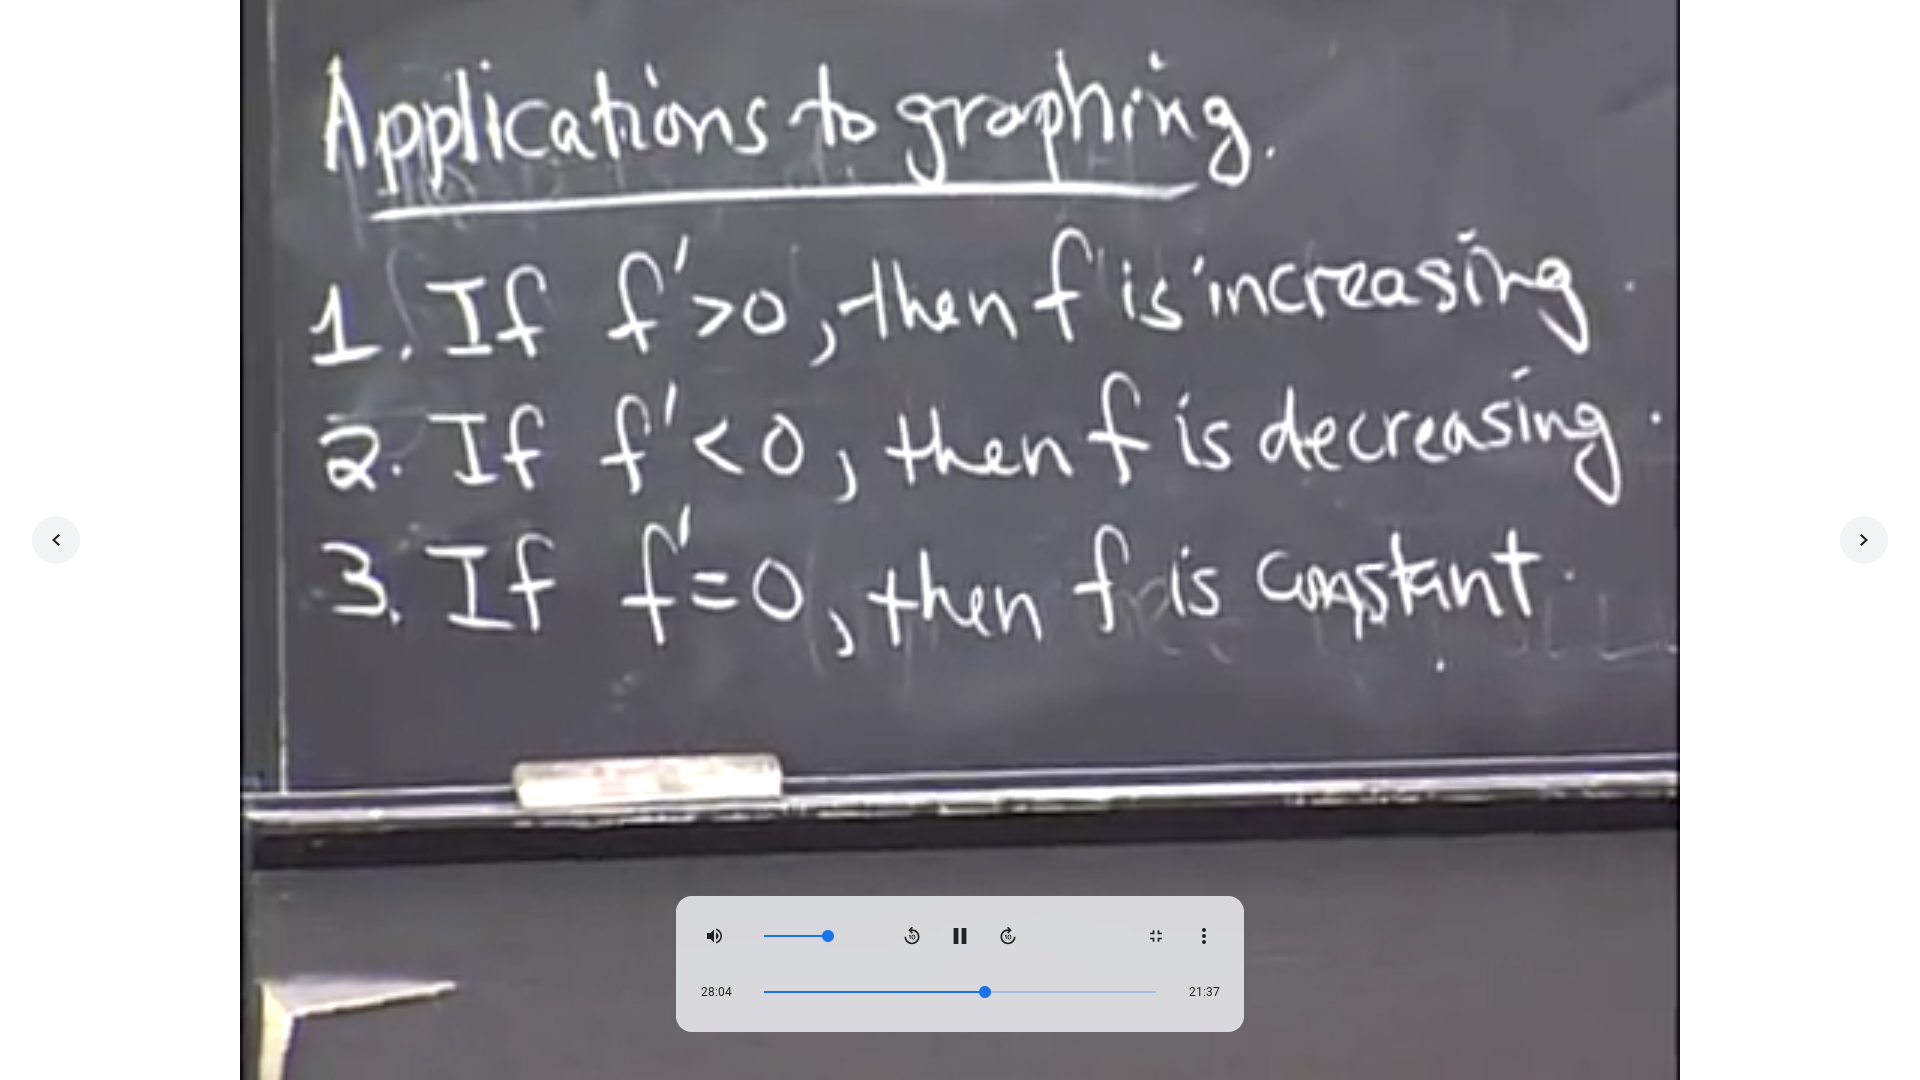 Applications to graphing.
1. If f'>0, then f is increasing.
2. If f'<0, then f is decreasing.
3. If f'=0, then f is constant.
10
10
28:04
21:37